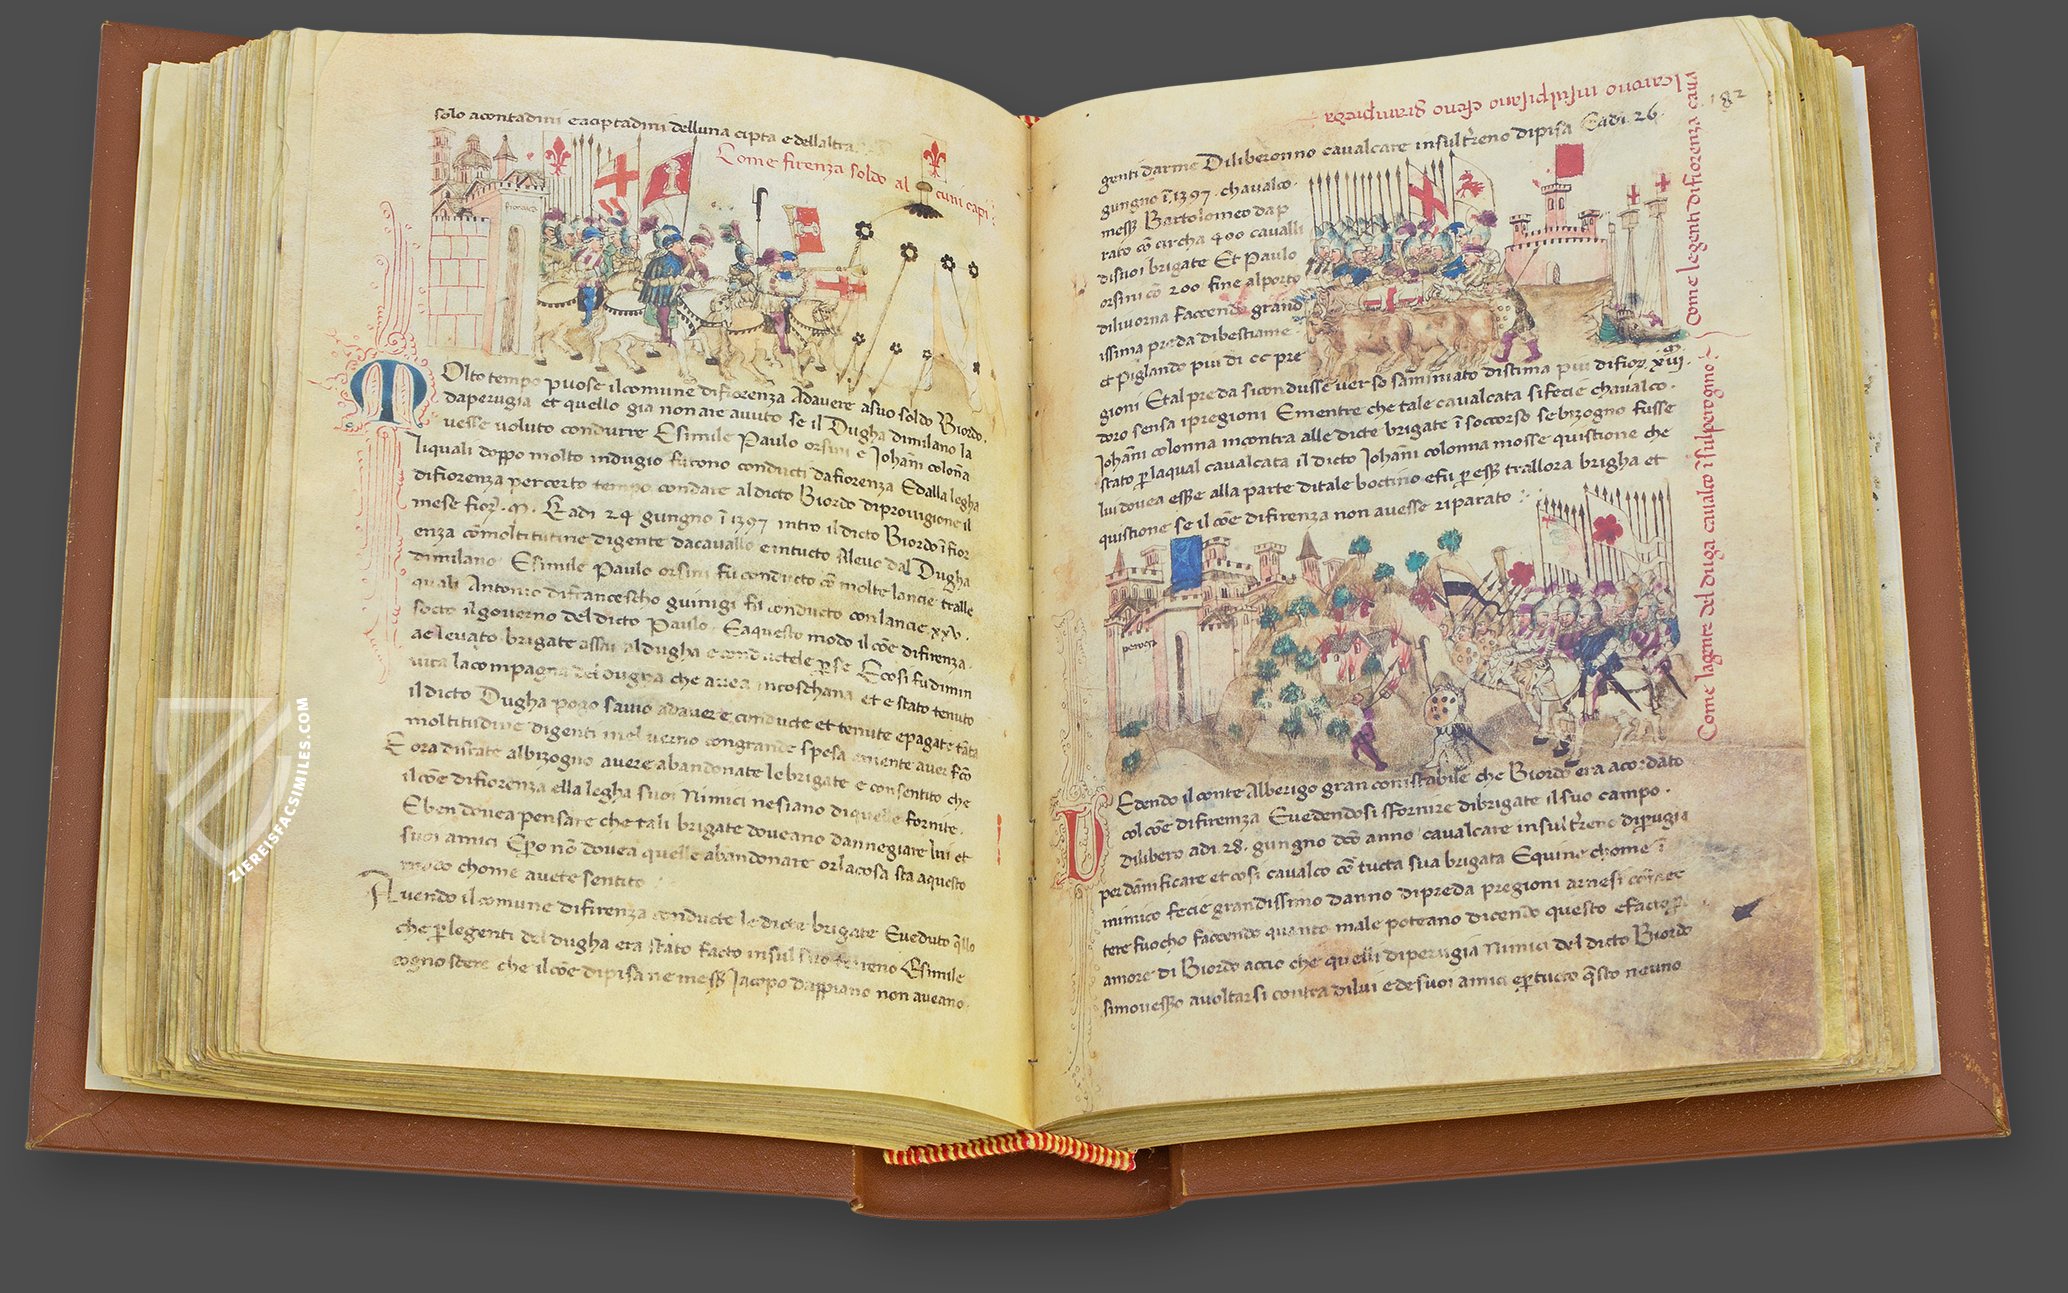 solo acontadini eaciptadini delluna cipta e dellaltra
Come firenza soldo al cuni capi
firenza
Molto tempo puose il comune di fiorenza Adavere asuo soldo Biordo
daperugia et quello gia non are avuto se il Dugha dimilano la
vesse voluto condurre Esimile Paulo orsini e Johani colonna
liquali doppo molto indugio furono conducti dafiorenza Edalla legha
difiorenza percerto tempo condare aldicto Biordo diprovigione il
mese fior. M. Eadi 24 gungno i 1397 intro il dicto Biordo i fior
enza co moltitutine digente dacavallo e intucto sileuo dal Dugha
dimilano Esimile Paulo orsini fu conducto co molte lancie tralle
quali Antonio difrancescho guinigi fu conducto con lancie xxv.
socto il governo del dicto Paulo. Eaquesto modo il coe difirenza.
ae levato brigate assai aldugha e conductele p se Ecosi fu dimin
uita lacompagna del dugha che avea intoschana et e stato tenuto
il dicto Dugha pogo savio adavere conducte et tenute epagate tata
moltitudine digenti inel verno congrande spesa
E ora distate albizogno avere abandonate le brigate e consentito che
il coe difiorenza ella legha suoi Nimici nesiano diquelle fornite.
Eben dovea pensare che tali brigate doveano dannegiare lui et
suoi amici Epo no dovea quelle abandonare or lacosa sta aquesto
modo chome avete sentito
Auendo il comune difirenza conducte le dicte brigate Eveduto qllo
che p legenti del dugha era stato facto insul suo terreno Esimile
cognoscere che il coe dipisa ne mess Jacopo dappiano non aveano
182
lcarono insulpisano efeno granpreda
Come legenti difiorenza cava
genti darme Diliberonno cavalcare insul treno dipisa Eadi 26
gungno i 1397. chavalco
mess Bartolomeo dap
rato co circha 400 cavalli
disuoi brigate Et Paulo
orsini co 200 fine alporto
dilivorna faccendo grand
issima preda dibestiame
et pigliando piu di cc pre
gioni Etal preda si condusse verso saminiato distima piu di fior. xiiij M.
doro sensa ipregioni E mentre che tale cavalcata si fecie chavalco
Johani colonna incontra alle dicte brigate i soccorso se bizogno fusse
stato p laqual cavalcata il dicto Johani colonna mosse quistione che
lui dovea esse alla parte ditale boctino e fu p esse trallora brigha et
quistione se il coe difirenza non avesse riparato
Come lagente del duga cavalco i sulperogino
perogia
Vedendo il conte Alberigo gran conistabile che Biordo era acordato
col coe difirenza Evedendosi sfornire dibrigate il suo campo.
dilibero adi 28. gungno dco anno cavalcare insul treno dipugia
per danificare et cosi cavalco co tucta sua brigata Equine chome i
nimico fecie grandissimo danno dipreda pregioni arnesi
tere fuocho faccendo quanto male poteano dicendo questo
amore di Biordo accio che quelli diperugia Nimici del dicto Biordo
simovesseo avoltarsi contra dilui e desuoi amici e p tucto qsto neuno
ZIEREISFACSIMILES.COM